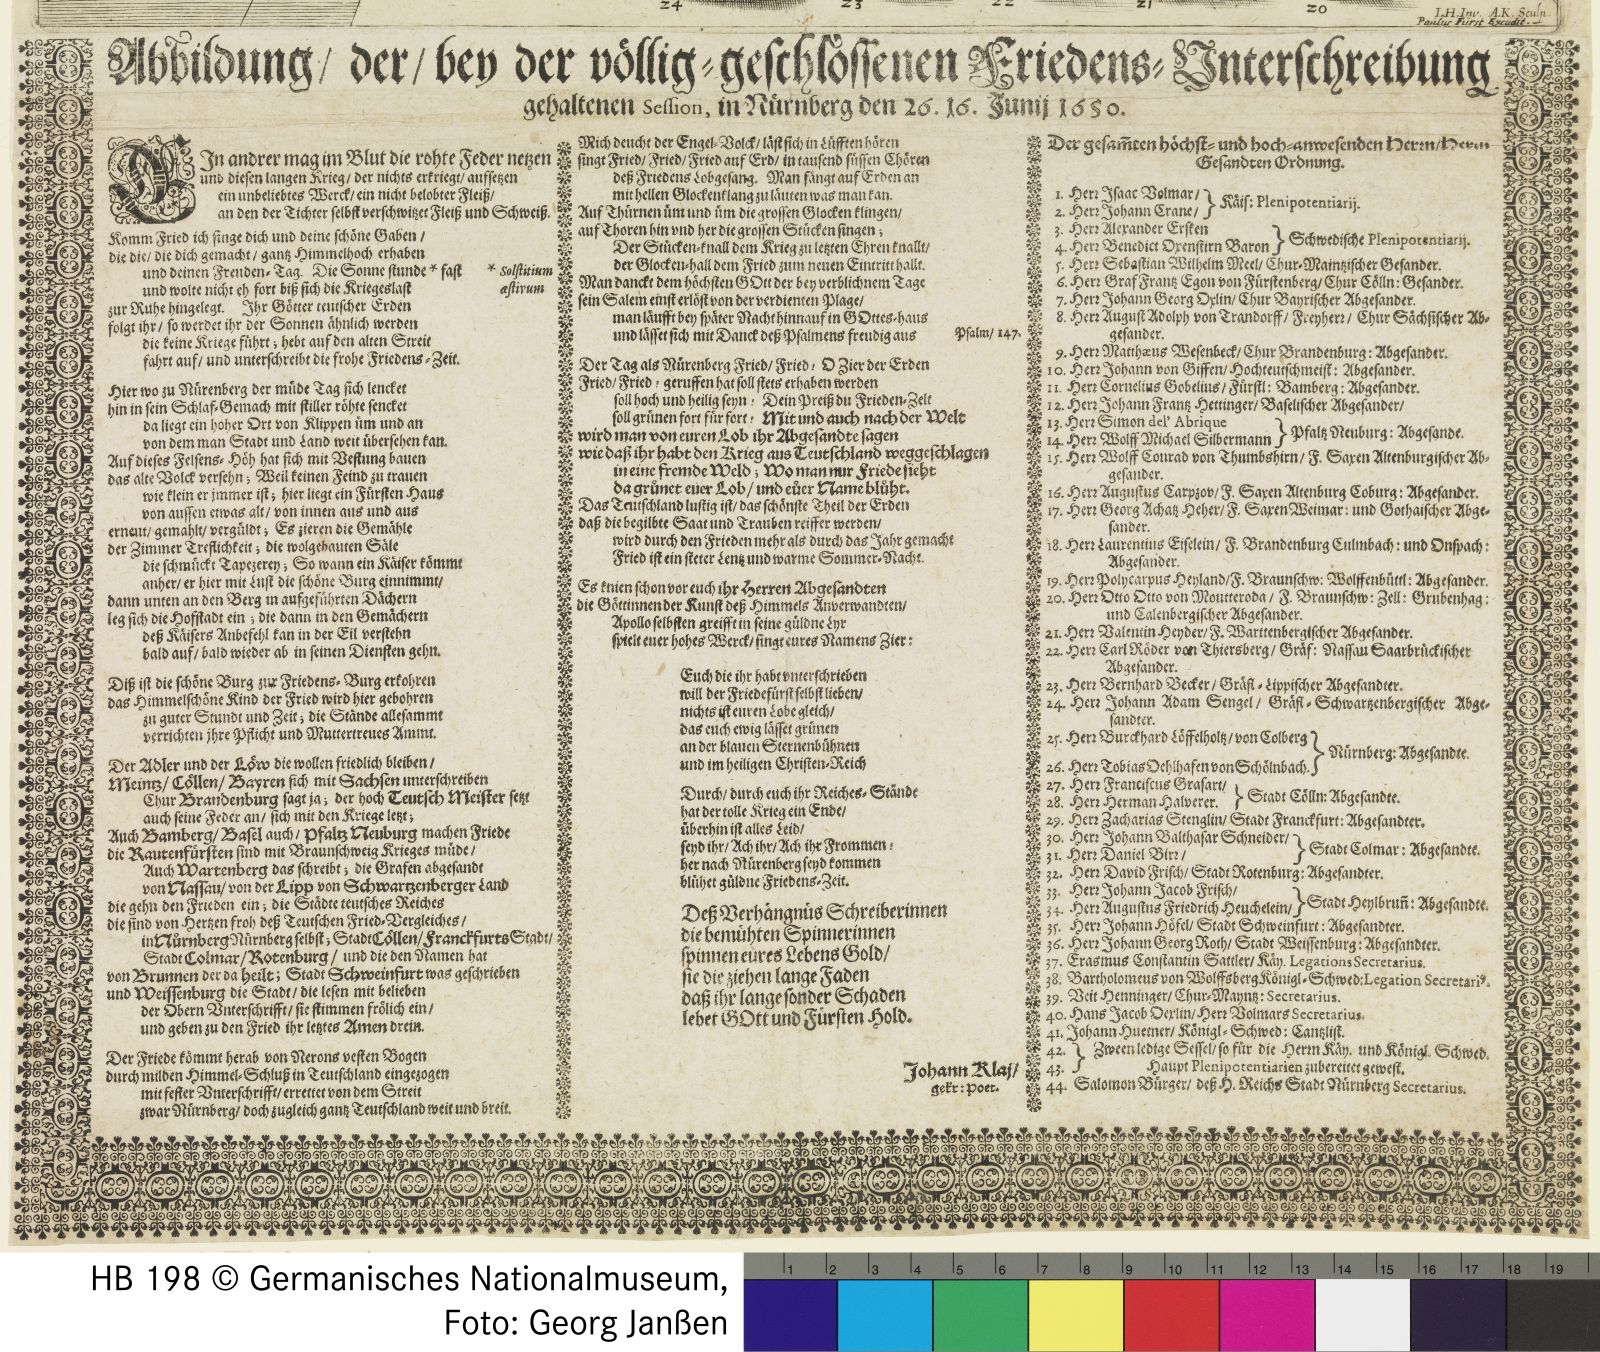 24 23 22 21 20
I.H. Inv. A.K. Sculp.
Paulus Fürst Excudit.
Abbildung/ der/ bey der völlig-geschlossenen Friedens-Unterschreibung
gehaltenen Session, in Nürnberg den 26. 16. Junij 1650.
EIn andrer mag im Blut die rohte Feder netzen
und diesen langen Krieg/ der nichts erkriegt/ aufsetzen
ein unbeliebtes Werck/ ein nicht belobter Fleiß/
an den der Tichter selbst verschwitzet Fleiß und Schweiß.
Komm Fried ich singe dich und deine schöne Gaben/
die die/ die dich gemacht/ gantz Himmelhoch erhaben
und deinen Freuden-Tag. Die Sonne stunde* fast
* Solstitium
æstivum
und wolte nicht eh fort biß sich die Kriegeslast
zur Ruhe hingelegt. Ihr Götter teutscher Erden
folgt ihr/ so werdet ihr der Sonnen ähnlich werden
die keine Kriege führt; hebt auf den alten Streit
fahrt auf/ und unterschreibt die frohe Friedens-Zeit.
Hier wo zu Nürenberg der müde Tag sich lencket
hin in sein Schlaf-Gemach mit stiller röhte sencket
da liegt ein hoher Ort von Klippen üm und an
von dem man Stadt und Land weit übersehen kan.
Auf dieses Felsens-Höh hat sich mit Vestung bauen
das alte Volck versehn; Weil keinen Feind zu trauen
wie klein er jmmer ist; hier liegt ein Fürsten Haus
von aussen etwas alt/ von innen aus und aus
erneut/ gemahlt/ vergüldt; Es zieren die Gemähle
der Zimmer Treflichkeit; die wolgebauten Säle
die schmückt Tapezerey; So wann ein Käiser kömmt
anher/ er hier mit Lust die schöne Burg einnimmt/
dann unten an den Berg in aufgeführten Dächern
leg sich die Hofstadt ein; die dann in den Gemächern
deß Käisers Anbefehl kan in der Eil verstehn
bald auf/ bald wieder ab in seinen Diensten gehn.
Diß ist die schöne Burg zur Friedens-Burg erkohren
das Himmelschöne Kind der Fried wird hier gebohren
zu guter Stund und Zeit; die Stände allesammt
verrichten jhre Pflicht und Muttertreues Ammt.
Der Adler und der Löw die wollen friedlich bleiben/
Meintz/ Cöllen/ Bayren sich mit Sachsen unterschreiben
Chur Brandenburg sagt ja; der hoch Teutsch Meister setzt
auch seine Feder an/ sich mit den Kriege letzt;
Auch Bamberg/ Basel auch/ Pfaltz Neuburg machen Friede
die Rautenfürsten sind mit Braunschweig Krieges müde/
Auch Wartenberg das schreibt; die Grafen abgesandt
von Nassau/ von der Lipp von Schwartzenberger Land
die gehn den Frieden ein; die Städte teutsches Reiches
die sind von Hertzen froh deß Teutschen Fried-Vergleiches/
in Nürnberg Nürnberg selbst; Stadt Cöllen/ Franckfurts Stadt/
Stadt Colmar/ Rotenburg/ und die den Namen hat
von Brunnen der da heilt; Stadt Schweinfurt was geschrieben
und Weissenburg die Stadt/ die lesen mit belieben
der Obern Unterschrifft/ sie stimmen frölich ein/
und geben zu den Fried ihr letztes Amen drein.
Der Friede kömmt herab von Nerons vesten Bogen
durch milden Himmel-Schluß in Teutschland eingezogen
mit fester Unterschrifft/ errettet von dem Streit
zwar Nürnberg/ doch zugleich gantz Teutschland weit und breit.
Mich deucht der Engel-Volck/ läst sich in Lüfften hören
singt Fried/ Fried/ Fried auf Erd/ in tausend süssen Chören
deß Friedens Lobgesang. Man fängt auf Erden an
mit hellen Glockenklang zu läuten was man kan.
Auf Thürnen üm und üm die grossen Glocken klingen/
auf Thoren hin vnd her die grossen Stücken singen;
Der Stücken-knall dem Krieg zu letzten Ehren knallt/
der Glocken-hall dem Fried zum neuen Eintritt hallt.
Man danckt dem höchsten GOtt der bey verblichnem Tage
sein Salem einst erlöst von der verdienten Plage/
man läufft bey später Nacht hinnauf in GOttes-haus
und lässet sich mit Danck deß Psalmens freudig aus
Psalm/ 147.
Der Tag als Nürenberg Fried/ Fried: O Zier der Erden
Fried/ Fried: geruffen hat soll stets erhaben werden
soll hoch und heilig seyn: Dein Preiß du Frieden-Zeit
soll grünen fort für fort: Mit und auch nach der Welt
wird man von euren Lob ihr Abgesandte sagen
wie daß ihr habt den Krieg aus Teutschland weggeschlagen
in eine fremde Weld; Wo man nur Friede sieht
da grünet euer Lob/ und eüer Name blüht.
Das Teutschland lustig ist/ das schönste Theil der Erden
daß die begilbte Saat und Trauben reiffer werden/
wird durch den Frieden mehr als durch das Jahr gemacht
Fried ist ein steter Lentz und warme Sommer-Nacht.
Es knien schon vor euch ihr Herren Abgesandten
die Göttinnen der Kunst deß Himmels Anverwandten/
Apollo selbsten greifft in seine güldne Lyr
spielt euer hohes Werck/ singt eures Namens Zier:
Euch die ihr habt vnterschrieben
will der Friedefürst selbst lieben/
nichts ist euren Lobe gleich/
das euch ewig lässet grünen
an der blauen Sternenbühnen
und im heiligen Christen-Reich
Durch/ durch euch ihr Reiches-Stände
hat der tolle Krieg ein Ende/
überhin ist alles Leid/
seyd ihr/ Ach ihr/ Ach ihr Frommen:
her nach Nürenberg seyd kommen
blühet güldne Friedens-Zeit.
Deß Verhängnüs Schreiberinnen
die bemühten Spinnerinnen
spinnen eures Lebens Gold/
sie die ziehen lange Faden
daß ihr lange sonder Schaden
lebet GOtt und Fürsten Hold.
Johann Klaj/
gekr: poet.
Der gesam̃ten höchst- und hoch-anwesenden Herrn/ Herrn
Gesandten Ordnung.
1. Herr Isaac Volmar/
2. Herr Johann Crane/ } Käis: Plenipotentiarij.
3. Herr Alexander Ersken
4. Herr Benedict Oxenstirn Baron } Schwedische Plenipotentiarij.
5. Herr Sebastian Wilhelm Meel/ Chur-Maintzischer Gesander.
6. Herr Graf Frantz Egon von Fürstenberg/ Chur Cölln: Gesander.
7. Herr Johann Georg Oxlin/ Chur Bayrischer Abgesander.
8. Herr August Adolph von Trandorff/ Freyherr/ Chur Sächsischer Ab-
gesander.
9. Herr Matthæus Wesenbeck/ Chur Brandenburg: Abgesander.
10. Herr Johann von Giffen/ Hochteutschmeist: Abgesander.
11. Herr Cornelius Gobelius/ Fürstl: Bamberg: Abgesander.
12. Herr Johann Frantz Hettinger/ Baselischer Abgesander/
13. Herr Simon del' Abrique
14. Herr Wolff Michael Silbermann } Pfaltz Neuburg: Abgesande.
15. Herr Wolff Conrad von Thumbshirn/ F. Saxen Altenburgischer Ab-
gesander.
16. Herr Augustus Carpzov/ F. Saxen Altenburg Coburg: Abgesander.
17. Herr Georg Achatz Heher/ F. Saxen Weimar: und Gothaischer Abge-
sander.
18. Herr Laurentius Eiselein/ F. Brandenburg Culmbach: und Onspach:
Abgesander.
19. Herr Polycarpus Heyland/ F. Braunschw: Wolffenbüttl: Abgesander.
20. Herr Otto Otto von Moutteroda/ F. Braunschw: Zell: Grubenhag:
und Calenbergischer Abgesander.
21. Herr Valentin Heyder/ F. Warttenbergischer Abgesander.
22. Herr Carl Röder von Thiersberg/ Gräf: Nassau Saarbrückischer
Abgesander.
23. Herr Bernhard Becker/ Gräfl-Lippischer Abgesandter.
24. Herr Johann Adam Sengel/ Gräfl-Schwartzenbergischer Abge-
sandter.
25. Herr Burckhard Löffelholtz/ von Colberg
26. Herr Tobias Oehlhafen von Schölnbach. } Nürnberg: Abgesandte.
27. Herr Franciscus Grasart/
28. Herr Herman Halverer. } Stadt Cölln: Abgesandte.
29. Herr Zacharias Stenglin/ Stadt Franckfurt: Abgesandter.
30. Herr Johann Balthasar Schneider/
31. Herr Daniel Birr/ } Stadt Colmar: Abgesandte.
32. Herr David Frisch/ Stadt Rotenburg: Abgesandter.
33. Herr Johann Jacob Frisch/
34. Herr Augustus Friedrich Heuchelein/ } Stadt Heylbruñ: Abgesandte.
35. Herr Johann Höfel/ Stadt Schweinfurt: Abgesandter.
36. Herr Johann Georg Roth/ Stadt Weissenburg: Abgesandter.
37. Erasmus Constantin Sattler/ Käy. Legations Secretarius.
38. Bartholomeus von Wolffsberg Königl-Schwed: Legation Secretari9.
39. Veit Henninger/ Chur-Mayntz: Secretarius.
40. Hans Jacob Oexlin/ Herr Volmars Secretarius.
41. Johann Huetner/ Königl-Schwed: Cantzlist.
42. } Zween ledige Sessel/ so für die Herrn Käy. und Königl. Schwed.
43. Haupt Plenipotentiarien zubereitet gewest.
44. Salomon Bürger/ deß H. Reichs Stadt Nürnberg Secretarius.
HB 198 © Germanisches Nationalmuseum,
Foto: Georg Janßen
1 2 3 4 5 6 7 8 9 10 11 12 13 14 15 16 17 18 19